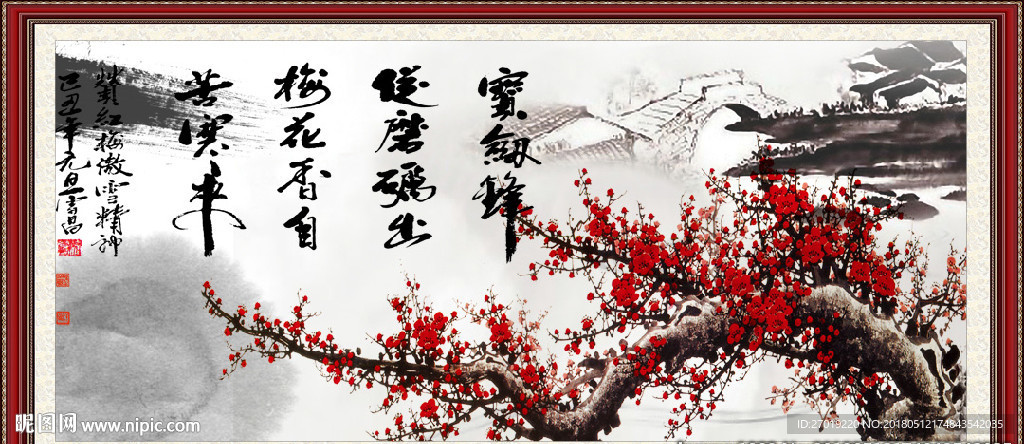 寶劍鋒
從磨礪出
梅花香自
苦寒来
紅梅傲雪精神
己丑年元旦
昵图网 www.nipic.com
ID:27019220 NO:20180512174843542035